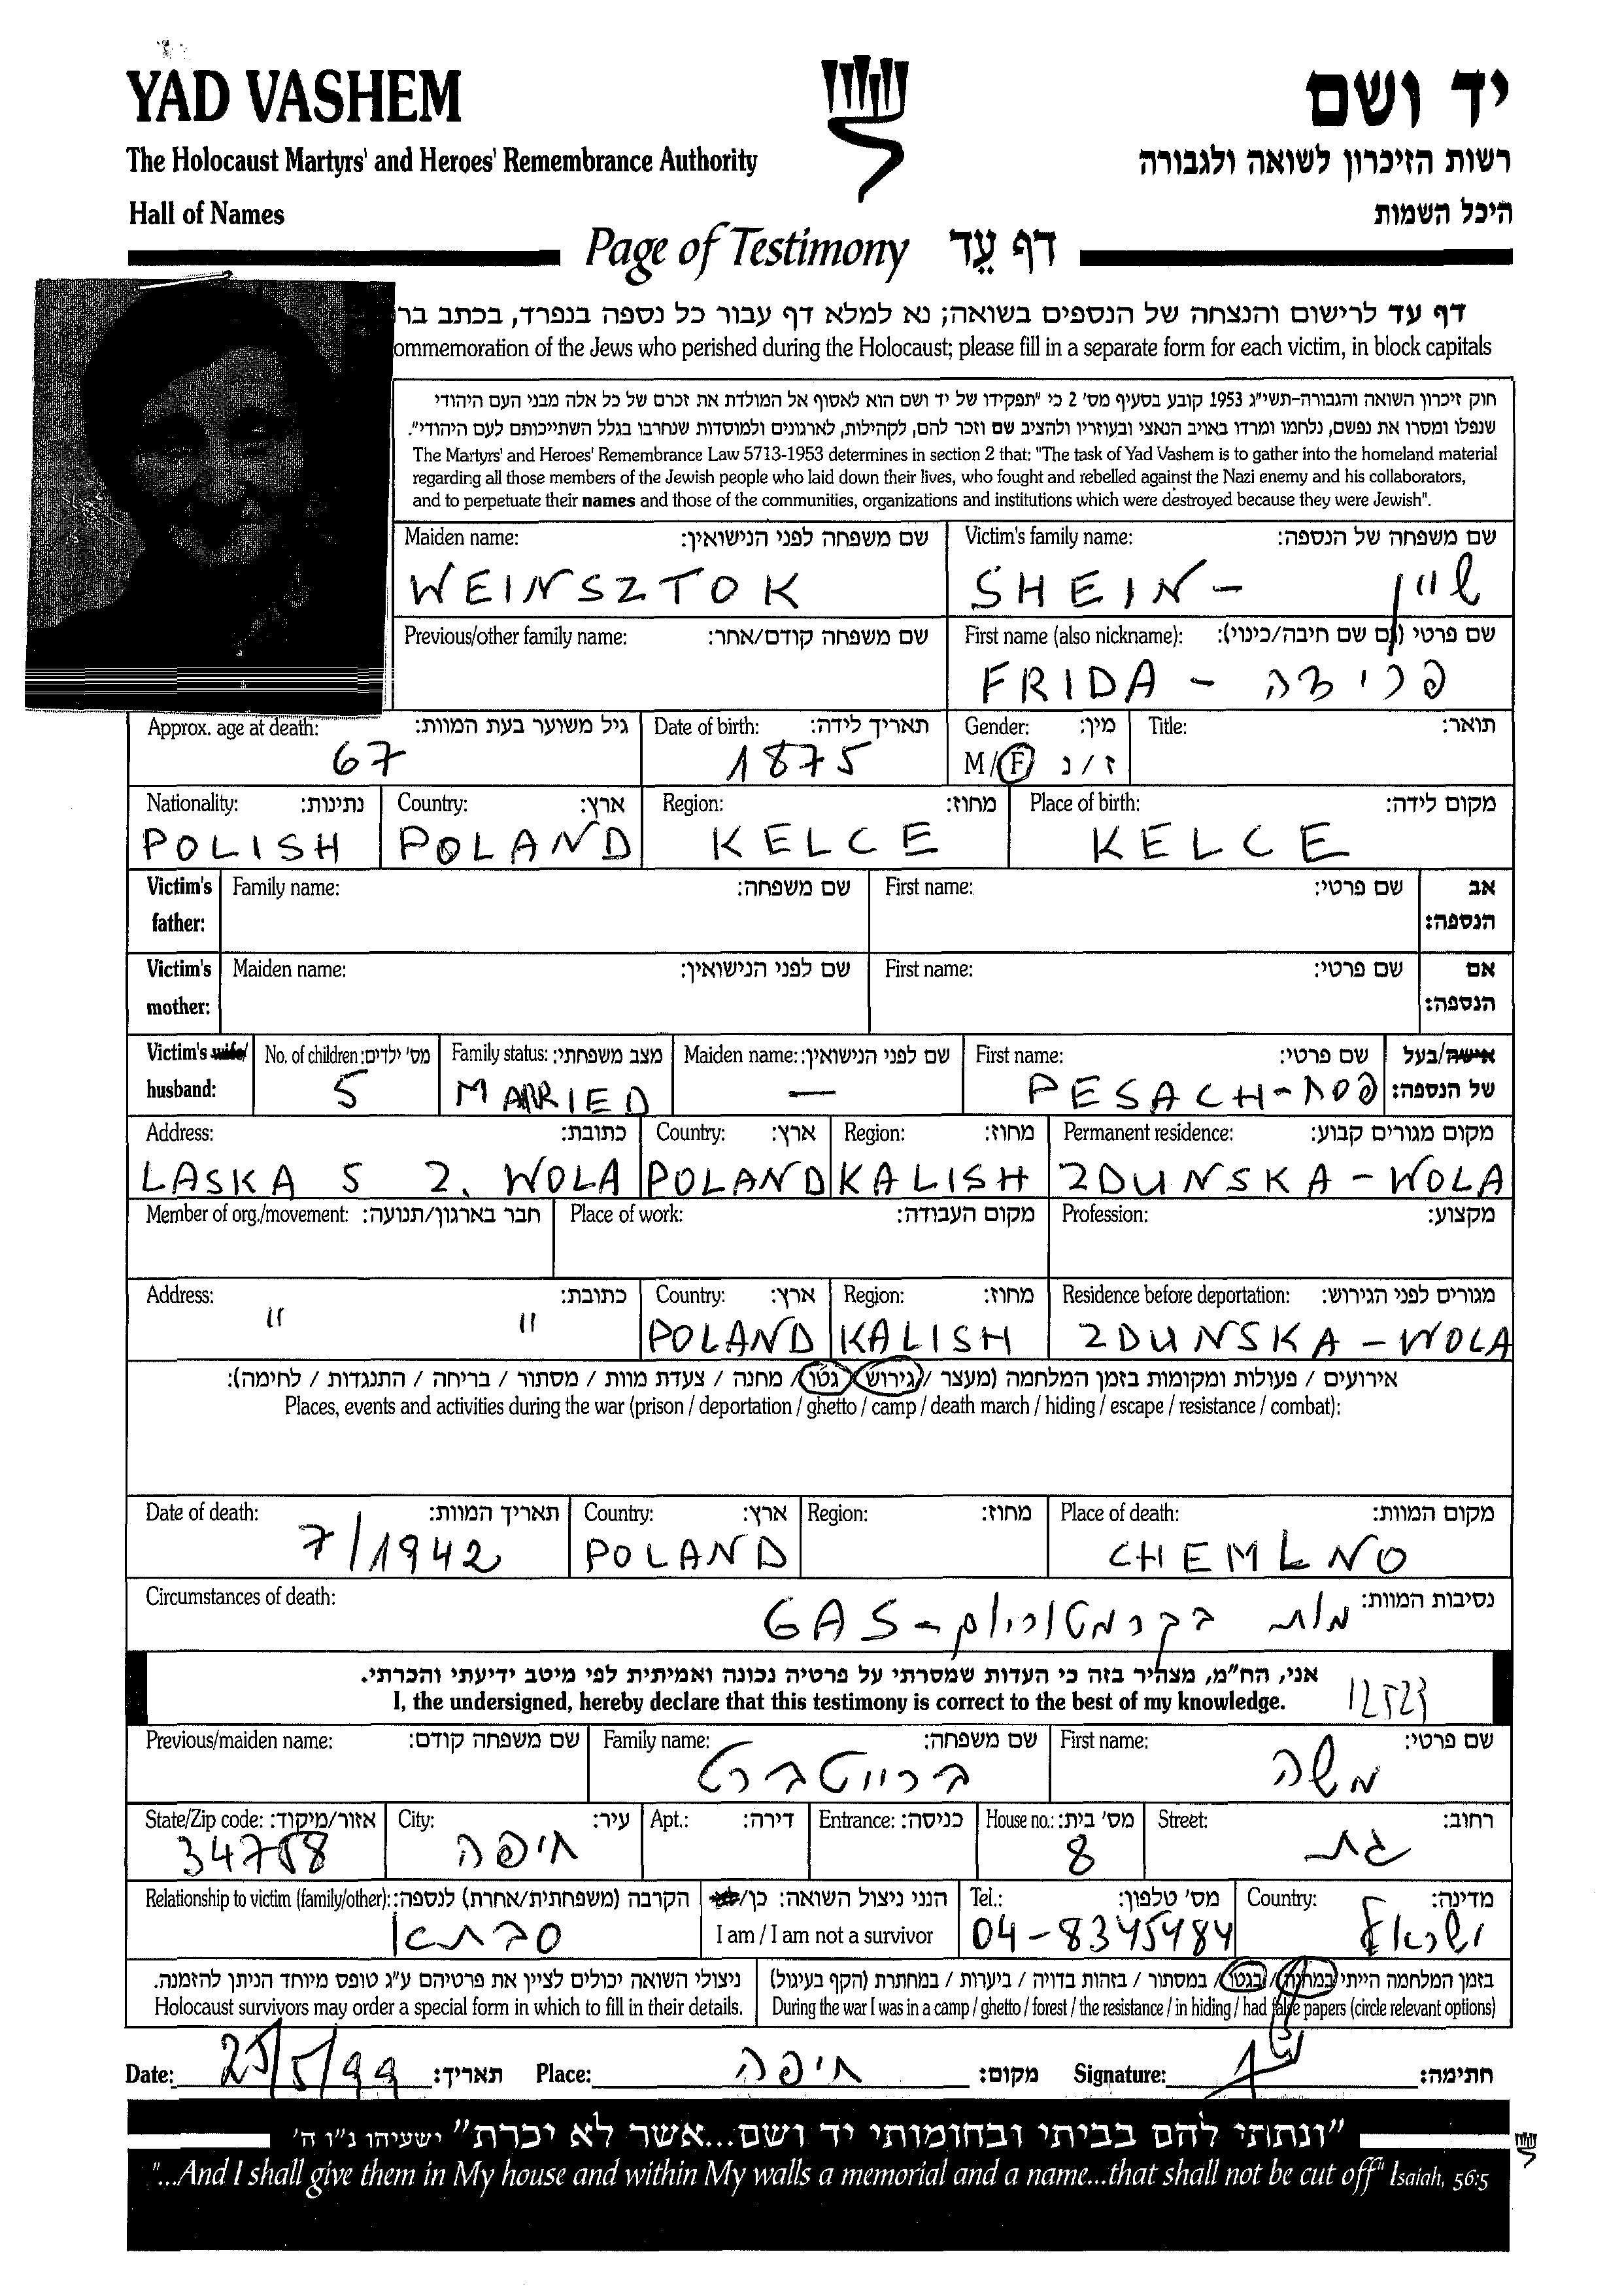 YAD VASHEM
יד ושם
The Holocaust Martyrs' and Heroes' Remembrance Authority
רשות הזיכרון לשואה ולגבורה
Hall of Names
היכל השמות
Page of Testimony דף עֵד
דף עד לרישום והנצחה של הנספים בשואה; נא למלא דף עבור כל נספה בנפרד, בכתב בר
ommemoration of the Jews who perished during the Holocaust; please fill in a separate form for each victim, in block capitals
חוק זיכרון השואה והגבורה-תשי"ג 1953 קובע בסעיף מס' 2 כי "תפקידו של יד ושם הוא לאסוף אל המולדת את זכרם של כל אלה מבני העם היהודי
שנפלו ומסרו את נפשם, נלחמו ומרדו באויב הנאצי ובעוזריו ולהציב שם וזכר להם, לקהילות, לארגונים ולמוסדות שנחרבו בגלל השתייכותם לעם היהודי".
The Martyrs' and Heroes' Remembrance Law 5713-1953 determines in section 2 that: "The task of Yad Vashem is to gather into the homeland material
regarding all those members of the Jewish people who laid down their lives, who fought and rebelled against the Nazi enemy and his collaborators,
and to perpetuate their names and those of the communities, organizations and institutions which were destroyed because they were Jewish".
Maiden name: שם משפחה לפני הנישואין: Victim's family name: שם משפחה של הנספה:
WEINSZTOK SHEIN - שיין
Previous/other family name: שם משפחה קודם/אחר: First name (also nickname): שם פרטי (גם שם חיבה/כינוי):
FRIDA - פרידה
Approx. age at death: גיל משוער בעת המוות: Date of birth: תאריך לידה: Gender: מין: Title: תואר:
67 1875 M/F ז/נ
Nationality: נתינות: Country: ארץ: Region: מחוז: Place of birth: מקום לידה:
POLISH POLAND KELCE KELCE
Victim's father: Family name: שם משפחה: First name: שם פרטי: אב הנספה:
Victim's mother: Maiden name: שם לפני הנישואין: First name: שם פרטי: אם הנספה:
Victim's wife/ No. of children: מס' ילדים: Family status: מצב משפחתי: Maiden name: שם לפני הנישואין: First name: שם פרטי: אישה/בעל
husband: 5 MARRIED — PESACH-פסח של הנספה:
Address: כתובת: Country: ארץ: Region: מחוז: Permanent residence: מקום מגורים קבוע:
LASKA 5 Z. WOLA POLAND KALISH ZDUNSKA-WOLA
Member of org./movement: חבר בארגון/תנועה: Place of work: מקום העבודה: Profession: מקצוע:
Address: כתובת: Country: ארץ: Region: מחוז: Residence before deportation: מגורים לפני הגירוש:
" " POLAND KALISH ZDUNSKA-WOLA
אירועים / פעולות ומקומות בזמן המלחמה (מעצר / גירוש / גטו / מחנה / צעדת מוות / מסתור / בריחה / התנגדות / לחימה):
Places, events and activities during the war (prison / deportation / ghetto / camp / death march / hiding / escape / resistance / combat):
Date of death: תאריך המוות: Country: ארץ: Region: מחוז: Place of death: מקום המוות:
7/1942 POLAND CHEMLNO
Circumstances of death: נסיבות המוות:
מות בקרמטוריום-GAS
אני, הח"מ, מצהיר בזה כי העדות שמסרתי על פרטיה נכונה ואמיתית לפי מיטב ידיעתי והכרתי.
I, the undersigned, hereby declare that this testimony is correct to the best of my knowledge.
12523
Previous/maiden name: שם משפחה קודם: Family name: שם משפחה: First name: שם פרטי:
ברייטברט משה
State/Zip code: אזור/מיקוד: City: עיר: Apt.: דירה: Entrance: כניסה: House no.: מס' בית: Street: רחוב:
34758 חיפה 8 גת
Relationship to victim (family/other): הקרבה (משפחתית/אחרת) לנספה: הנני ניצול השואה: כן/ Tel.: מס' טלפון: Country: מדינה:
סבתא I am / I am not a survivor 04-8345484 ישראל
ניצולי השואה יכולים לציין את פרטיהם ע"ג טופס מיוחד הניתן להזמנה.
Holocaust survivors may order a special form in which to fill in their details.
בזמן המלחמה הייתי במחנה / בגטו / במסתור / בזהות בדויה / ביערות / במחתרת (הקף בעיגול)
During the war I was in a camp / ghetto / forest / the resistance / in hiding / had false papers (circle relevant options)
Date: 25/5/99 תאריך: Place: חיפה מקום: Signature: חתימה:
"ונתתי להם בביתי ובחומותי יד ושם...אשר לא יכרת" ישעיהו נ"ו ה'
"...And I shall give them in My house and within My walls a memorial and a name...that shall not be cut off" Isaiah, 56:5